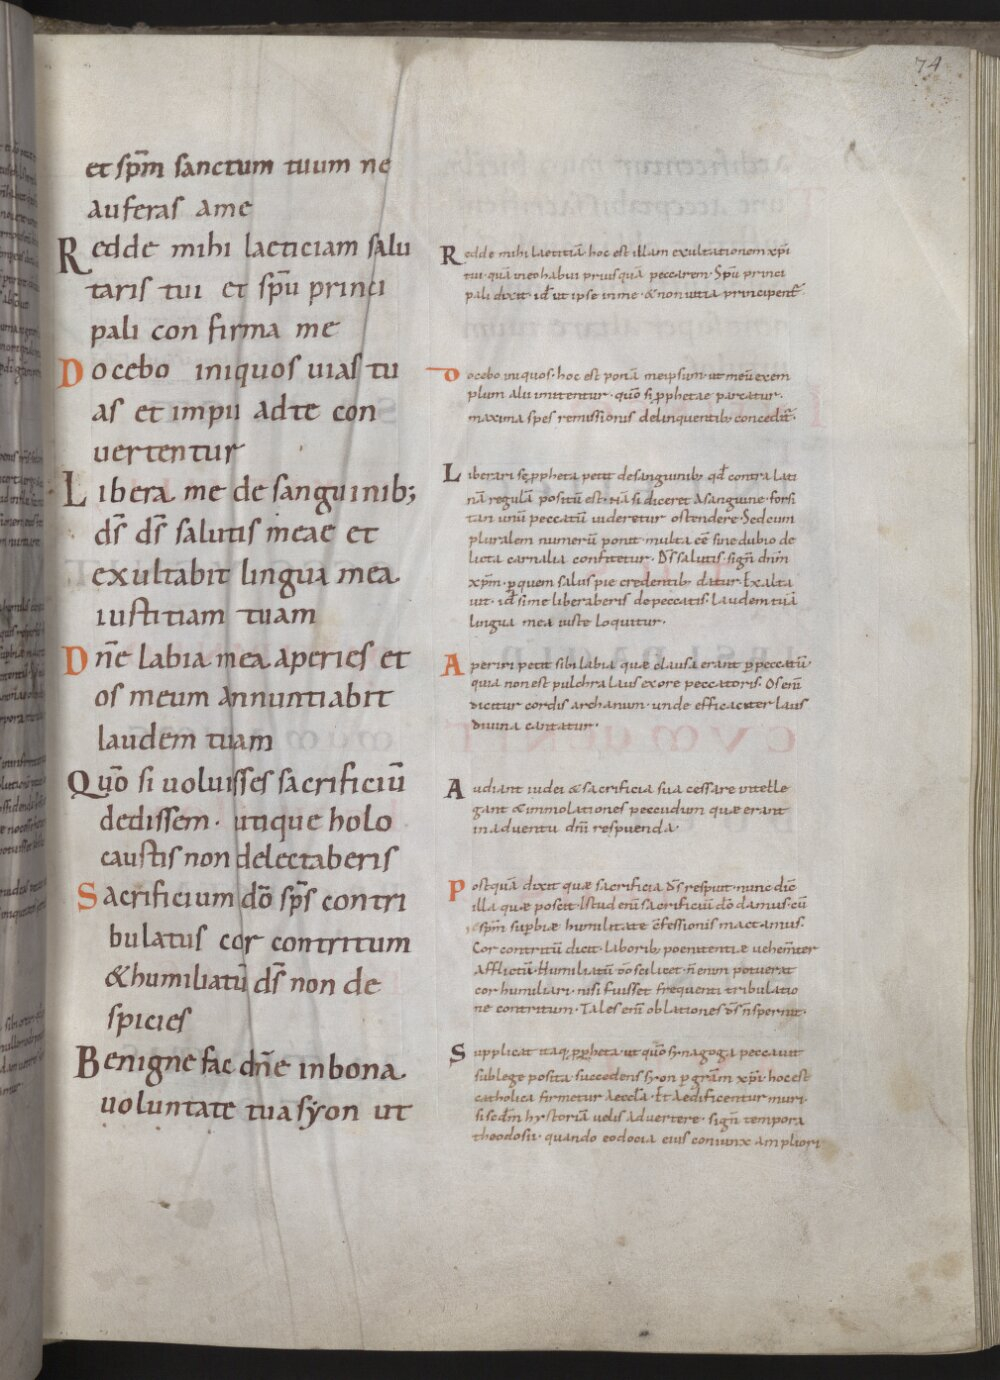 74
et sp̄m sanctum tuum ne
auferas ame
Redde mihi laeticiam salu
taris tui et sp̄u princi
pali con firma me
Docebo iniquos uias tu
as et impii adte con
uertentur
Libera me de sanguinib;
d̄s d̄s salutis meae et
exultabit lingua mea
iustitiam tuam
Dn̄e labia mea aperies et
os meum annuntiabit
laudem tuam
Quō si uoluisses sacrificiū
dedissem· utique holo
caustis non delectaberis
Sacrificium dō sp̄s contri
bulatus cor contritum
&humiliatū d̄s non de
spicies
Benigne fac dn̄e in bona
uoluntate tua syon ut
Redde mihi laetitiā· hoc est illam exultationem xp̄i
tui· quā ineo habui priusquā peccarem· Sp̄u princi
pali dixit· id̄ ut ipse inme· & non uitia principent̄·
Docebo iniquos· hoc est ponā meipsum· ut meū exem
plum alii imitentur· quō si pphetae parcatur·
maxima spes remissionis delinquentib; concedit̄·
Liberari se ppheta petit desanguinib; qd̄ contra lati
nā regulā positū est· Nā si diceret Asanguine· forsi
tan unū peccatū uideretur ostendere· Sedcum
pluralem numerū ponit· multa ēē sine dubio de
licta carnalia confitetur· D̄s salutis· sign̄ dn̄m
xp̄m· p quem salus pie credentib; datur· Exalta
uit· id̄ sime liberaberis depeccatis· laudem tuā
lingua mea iuste loquitur·
Aperiri petit sibi labia quæ clausa erant p peccatū·
quia non est pulchra laus exore peccatoris· Os enī
dicitur cordis archanum· unde efficaciter laus
diuina cantatur·
Audiant iudei & sacrificia sua cessare intelle
gant & immolationes peccudum quæ erant
inaduentu dn̄i respuenda·
Postquā dixit quæ sacrificia d̄s respuit· nunc dic̄
illa quæ poscit· Istud enī sacrificiū dō damus cū
sp̄m supbiæ humilitate c̄fessionis mactamus·
Cor contritū dicit· laborib; poenitentiæ uehem̄ter
Afflictū· Humiliatū ūo scilicet· n̄ enim potuerat
cor humiliari· nisi fuisset frequenti tribulatio
ne contritum· Tales enī oblationes d̄s n̄ spernit·
Supplicat itaq; ppheta· ut quō synagoga peccauit
sublege posita· succedens syon p grām xp̄i· hoc est
catholica firmetur aeccla· Et Aedificentur muri·
si scdm hystoriā uelis aduertere· sign̄ tempora
theodosii· quando eodocia eius coniunx ampliori